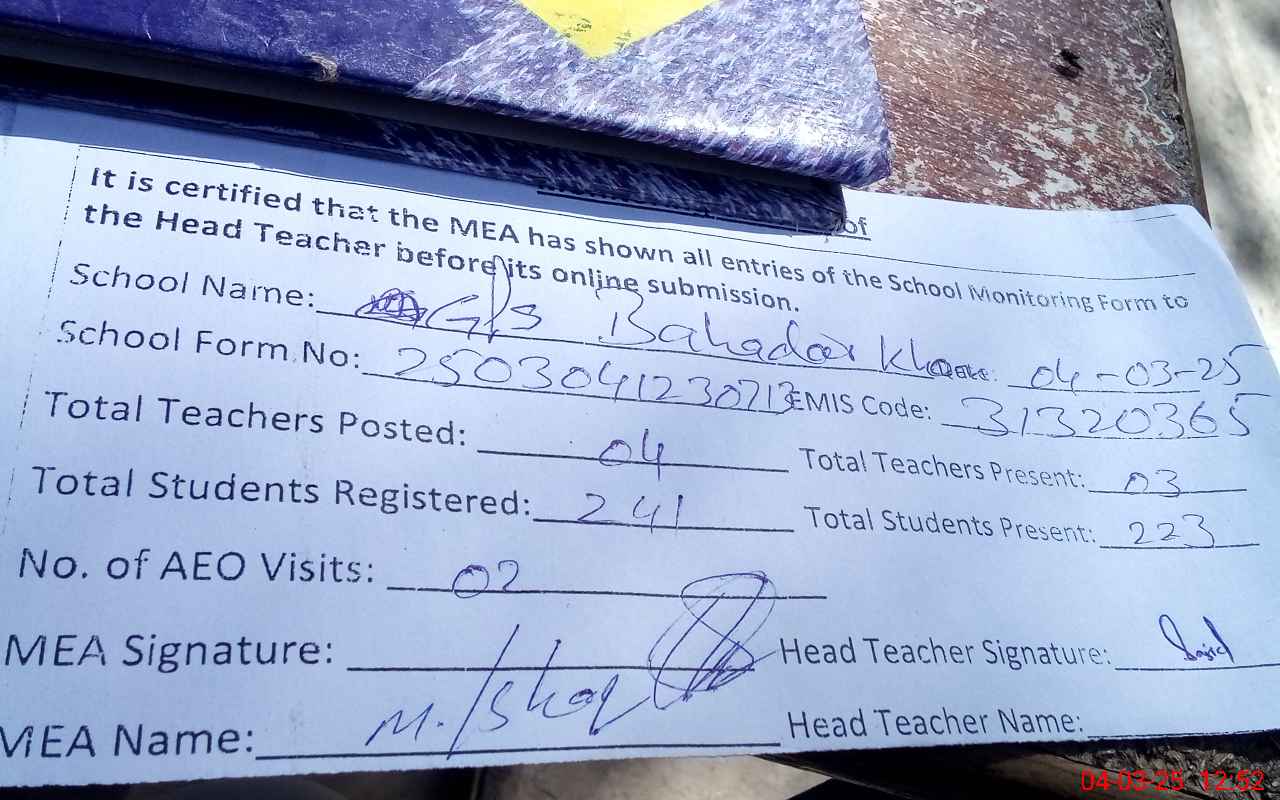 of
It is certified that the MEA has shown all entries of the School Monitoring Form to
the Head Teacher before its online submission.
School Name: G/s Bahadar Khan Date: 04-03-25
School Form No: 2503041230713 EMIS Code: 31320365
Total Teachers Posted: 04 Total Teachers Present: 03
Total Students Registered: 241 Total Students Present: 223
No. of AEO Visits: 02
MEA Signature: Head Teacher Signature:
MEA Name: M. Ishaq Head Teacher Name:
04-03-25 12:52